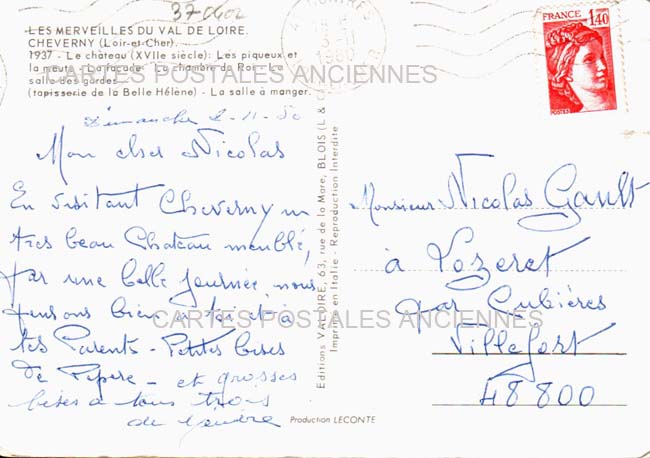 37-0402
LES MERVEILLES DU VAL DE LOIRE.
CHEVERNY (Loir-et-Cher).
1937 - Le château (XVIIe siècle): Les piqueux et
la meute - La façade - La chambre du Roi - La
salle des gardes
(tapisserie de la Belle Hélène) - La salle à manger.
CARTES POSTALES ANCIENNES
FRANCE
1,40
POSTES
Dimanche 2-11-80
Mon cher Nicolas
En visitant Cheverny un
très beau Chateau meublé,
par une belle journée, nous
pensons bien à toi et à
tes Parents - Petites bises
de Pépère - et grosses
bises à tous trois
de
Editions VALOIRE, 63, rue de la Mare, BLOIS (L & C)
Imprimé en Italie - Reproduction Interdite
Production LECONTE
Monsieur Nicolas Gault
à Pozeret
par Cubières
Villefort
48800
CARTES POSTALES ANCIENNES